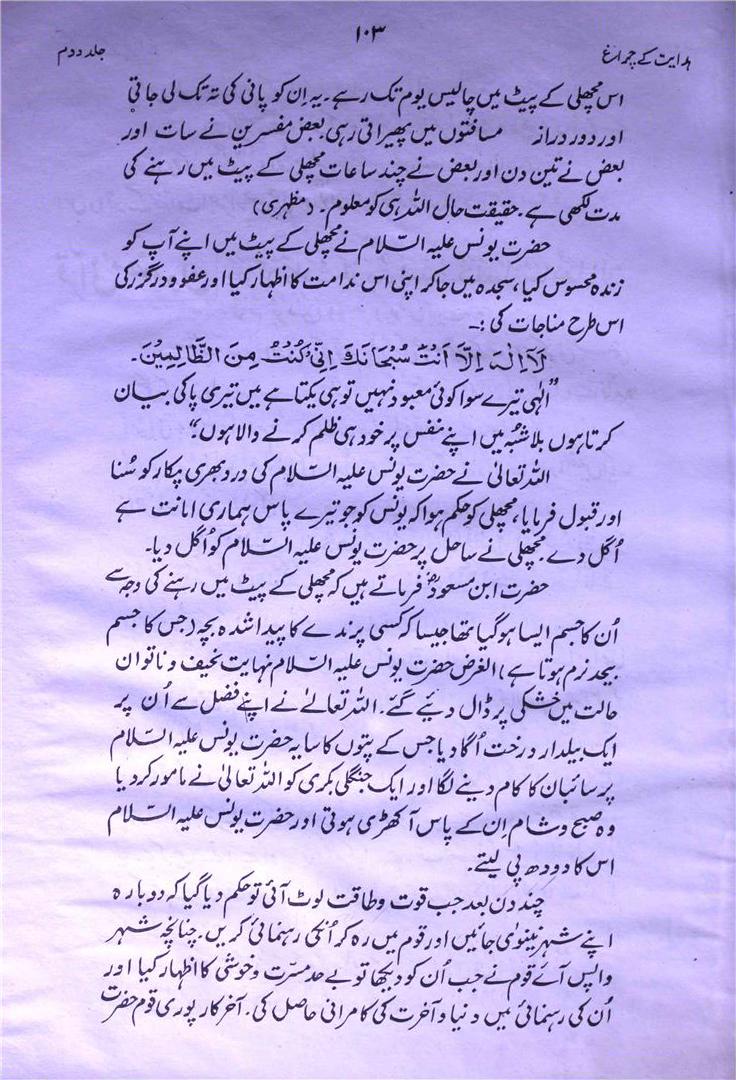 ۱۰۳
ہدایت کے چراغ
جلد دوم
اس مچھلی کے پیٹ میں چالیس یوم تک رہے۔ یہ اِن کو پانی کی تہ تک لی جاتی
اور دور دراز مسافتوں میں پھیراتی رہی بعض مفسرین نے سات اور
بعض نے تین دن اور بعض نے چند ساعات مچھلی کے پیٹ میں رہنے کی
مدت لکھی ہے۔ حقیقت حال اللہ ہی کو معلوم۔ (مظہری)
حضرت یونس علیہ السّلام نے مچھلی کے پیٹ میں اپنے آپ کو
زندہ محسوس کیا، سجدہ میں جا کر اپنی اس ندامت کا اظہار کیا اور عفو و درگزر کی
اس طرح مناجات کی :۔
لَآ اِلٰہَ اِلَّا اَنْتَ سُبْحَانَکَ اِنِّیْ کُنْتُ مِنَ الظَّالِمِیْنَ۔
"الٰہی تیرے سوا کوئی معبود نہیں تو ہی یکتا ہے میں تیری پاکی بیان
کرتا ہوں بلا شبُہ میں اپنے نفس پر خود ہی ظلم کرنے والا ہوں"۔
اللہ تعالیٰ نے حضرت یونس علیہ السّلام کی درد بھری پکار کو سُنا
اور قبول فرمایا، مچھلی کو حکم ہوا کہ یونس کو جو تیرے پاس ہماری امانت ہے
اُگل دے۔ مچھلی نے ساحل پر حضرت یونس علیہ السّلام کو اُگل دیا۔
حضرت ابن مسعودؓ فرماتے ہیں کہ مچھلی کے پیٹ میں رہنے کی وجہ سے
اُن کا جسم ایسا ہو گیا تھا جیسا کہ کسی پرندے کا پیدا شدہ بچہ (جس کا جسم
بیحد نرم ہوتا ہے) الغرض حضرت یونس علیہ السّلام نہایت نحیف و ناتواں
حالت میں خشکی پر ڈال دئیے گئے۔ اللہ تعالےٰ نے اپنے فضل سے اُن پر
ایک بیلدار درخت اُگا دیا جس کے پتوں کا سایہ حضرت یونس علیہ السّلام
پر سائبان کا کام دینے لگا اور ایک جنگلی بکری کو اللہ تعالیٰ نے مامور کر دیا
وہ صبح و شام اِن کے پاس آ کھڑی ہوتی اور حضرت یونس علیہ السّلام
اس کا دودھ پی لیتے۔
چند دن بعد جب قوت و طاقت لوٹ آئی تو حکم دیا گیا کہ دوبارہ
اپنے شہر نینویٰ جائیں اور قوم میں رہ کر اُنکی رہنمائی کریں۔ چنانچہ شہر
واپس آئے قوم نے جب اُن کو دیکھا تو بے حد مسرّت و خوشی کا اظہار کیا اور
اُن کی رہنمائی میں دنیا و آخرت کی کامرانی حاصل کی۔ آخر کار پوری قوم حضرت